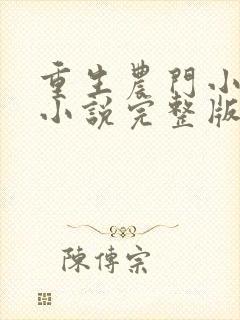 重生農門小
小說完整版
陳傳宗